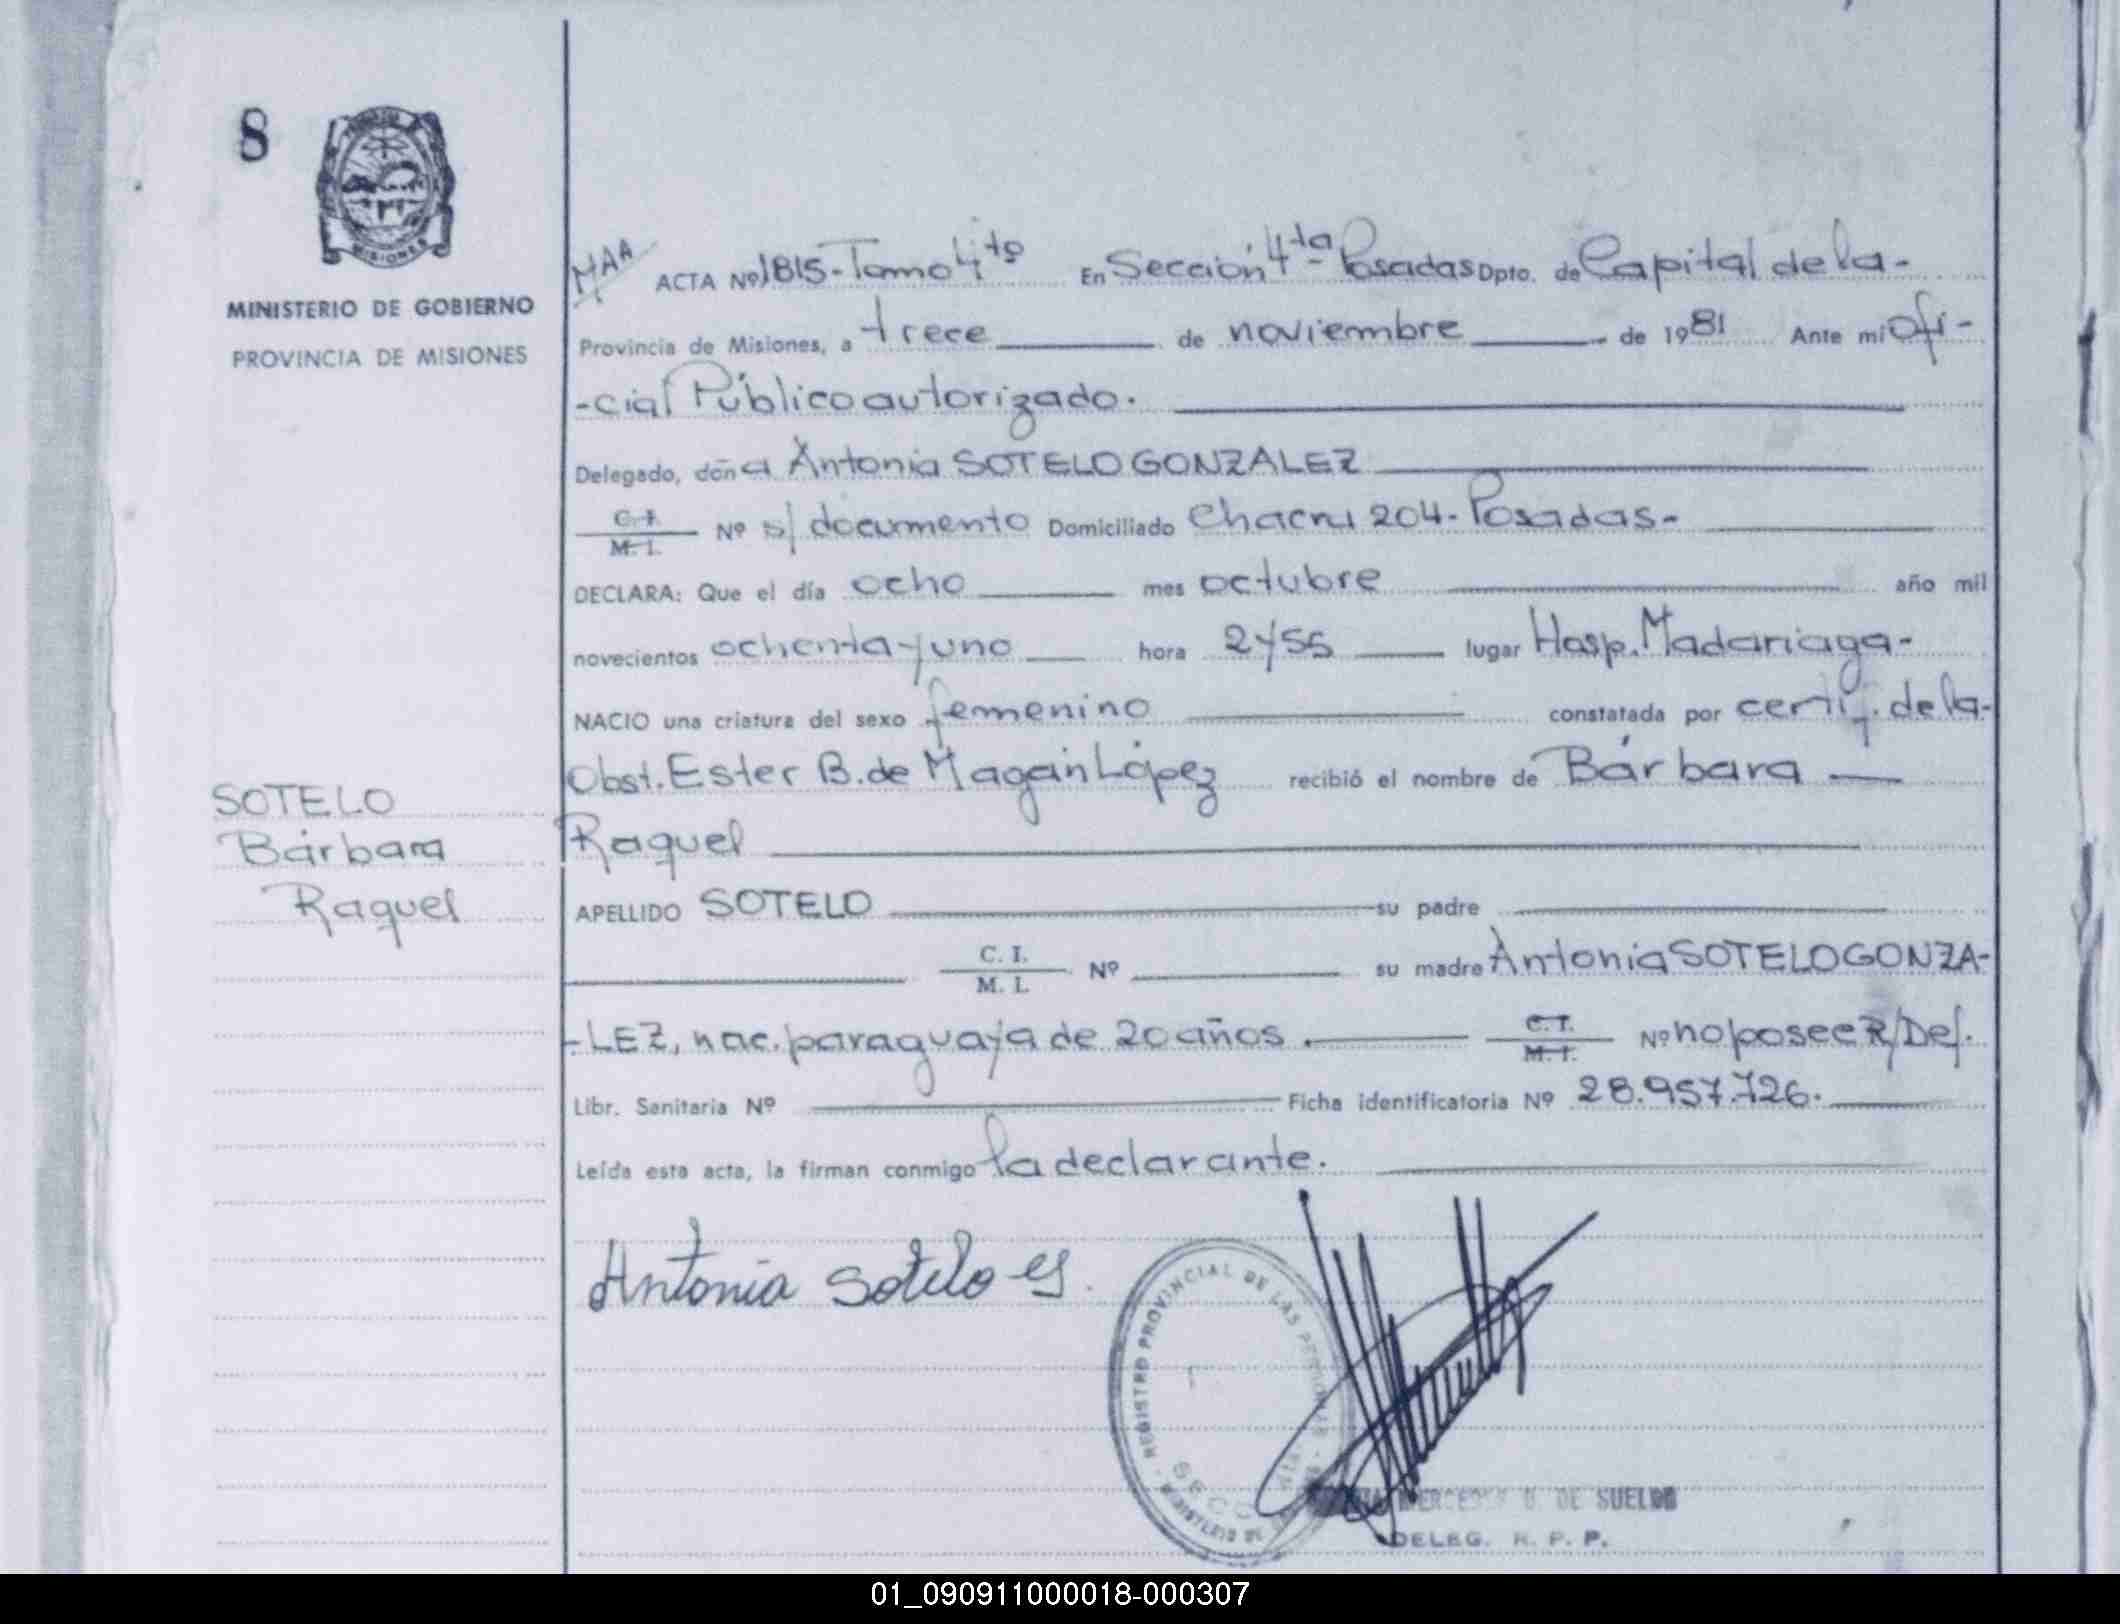 8
MISIONES
MINISTERIO DE GOBIERNO
PROVINCIA DE MISIONES
SOTELO
Bárbara
Raquel
MAA ACTA Nº 1815-Tomo 4to En Sección 4ta Posadas Dpto. de Capital de la-
Provincia de Misiones, a trece de noviembre de 1981 Ante mi Ofi-
-cial Público autorizado.
Delegado, doña Antonia SOTELO GONZALEZ
C. I. M. I. Nº s/ documento Domiciliado Chacra 204-Posadas-
DECLARA: Que el día ocho mes octubre año mil
novecientos ochenta y uno hora 2y55 lugar Hosp. Madariaga-
NACIO una criatura del sexo femenino constatada por certif. de la-
Obst. Ester B. de Magán López recibió el nombre de Bárbara
Raquel
APELLIDO SOTELO su padre
C. I. M. I. Nº su madre Antonia SOTELO GONZA-
-LEZ, nac. paraguaya de 20 años. C. I. M. I. Nº no posee R/Def.
Libr. Sanitaria Nº Ficha identificatoria Nº 28.957.726.
Leída esta acta, la firman conmigo la declarante.
Antonia Sotelo G.
REGISTRO PROVINCIAL DE LAS PERSONAS
MINISTERIO DE
MERCEDES DE SUELDO
DELEG. R. P. P.
01_090911000018-000307